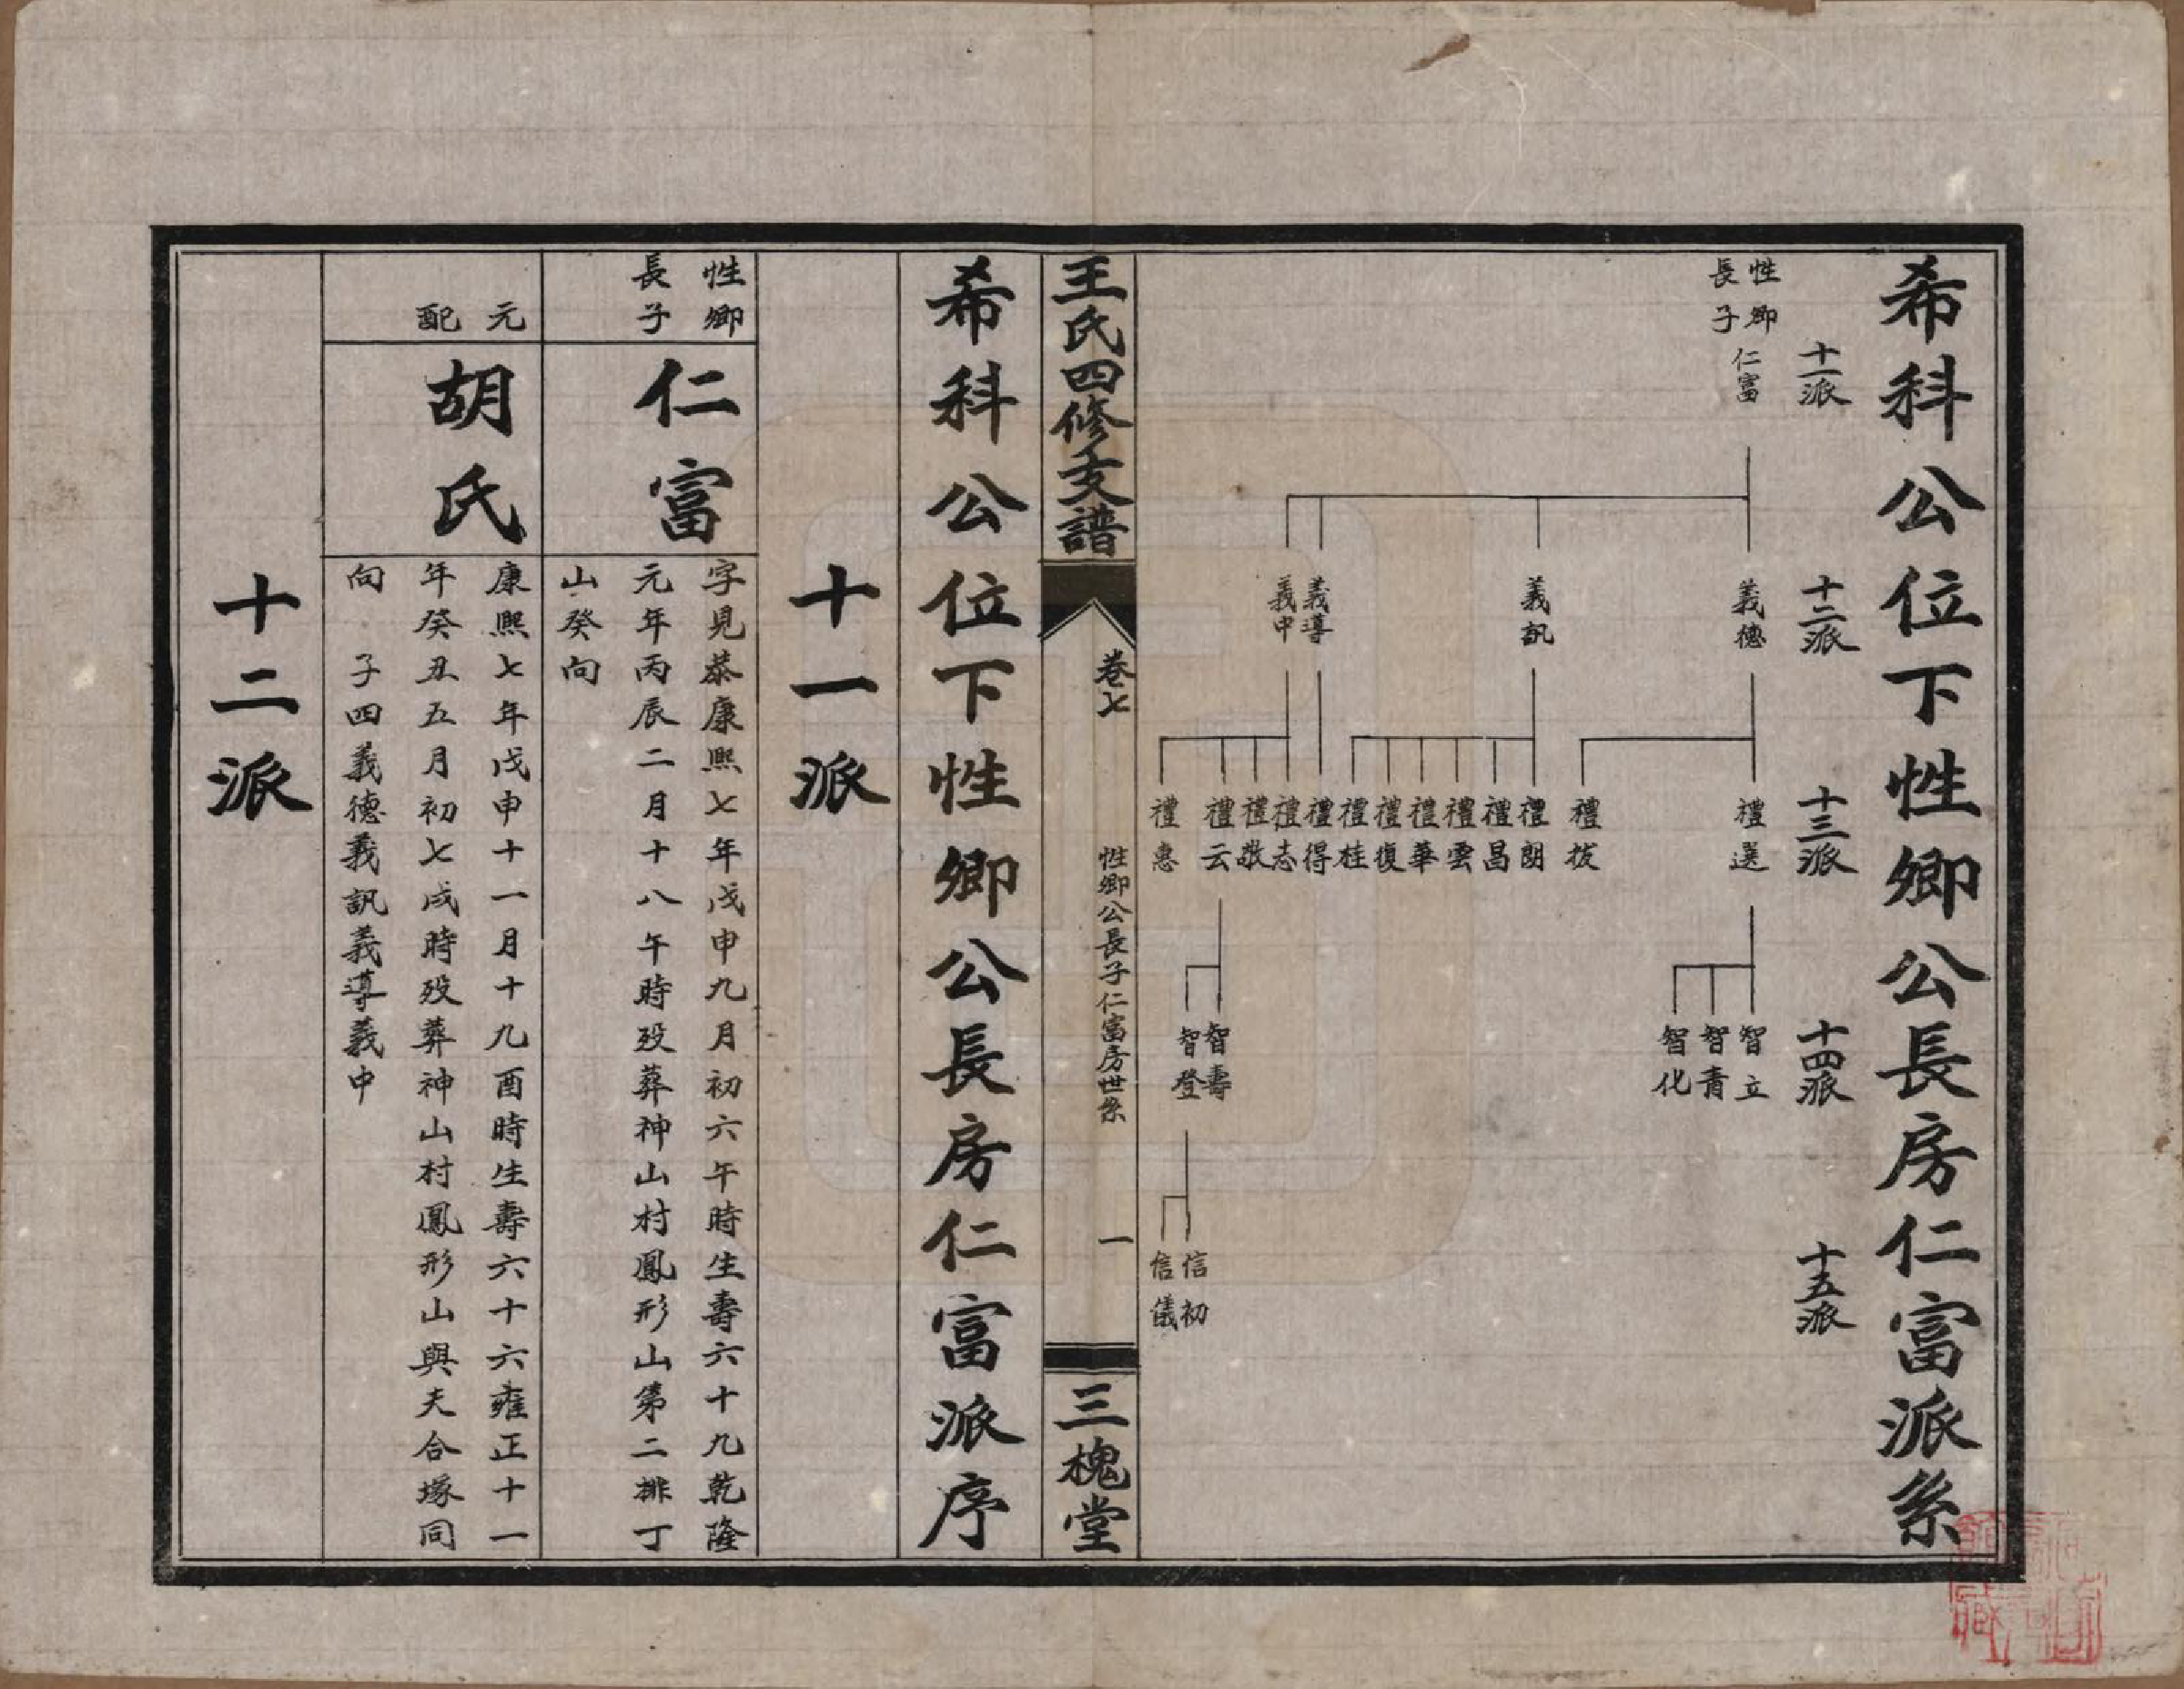 希科公位下性卿公長房仁富派系
十一派
十二派
十三派
十四派
十五派
性卿
長子
仁富
義德
義訊
義導
義中
禮選
禮拔
禮朗
禮昌
禮雲
禮華
禮復
禮桂
禮得
禮志
禮敬
禮云
禮惠
智立
智青
智化
智壽
智登
信初
信儀
王氏四修支譜
卷七
性卿公長子仁富房世系
一
三槐堂
希科公位下性卿公長房仁富派序
十一派
性卿
長子
仁富
字見恭康熙七年戊申九月初六午時生壽六十九乾隆
元年丙辰二月十八午時歿葬神山村鳳形山第二排丁
山癸向
元
配
胡氏
康熙七年戊申十一月十九酉時生壽六十六雍正十一
年癸丑五月初七戌時歿葬神山村鳳形山與夫合塚同
向 子四義德義訊義導義中
十二派